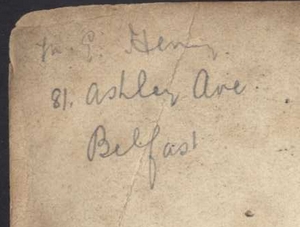 E. Henry
81. Ashley Ave
Belfast